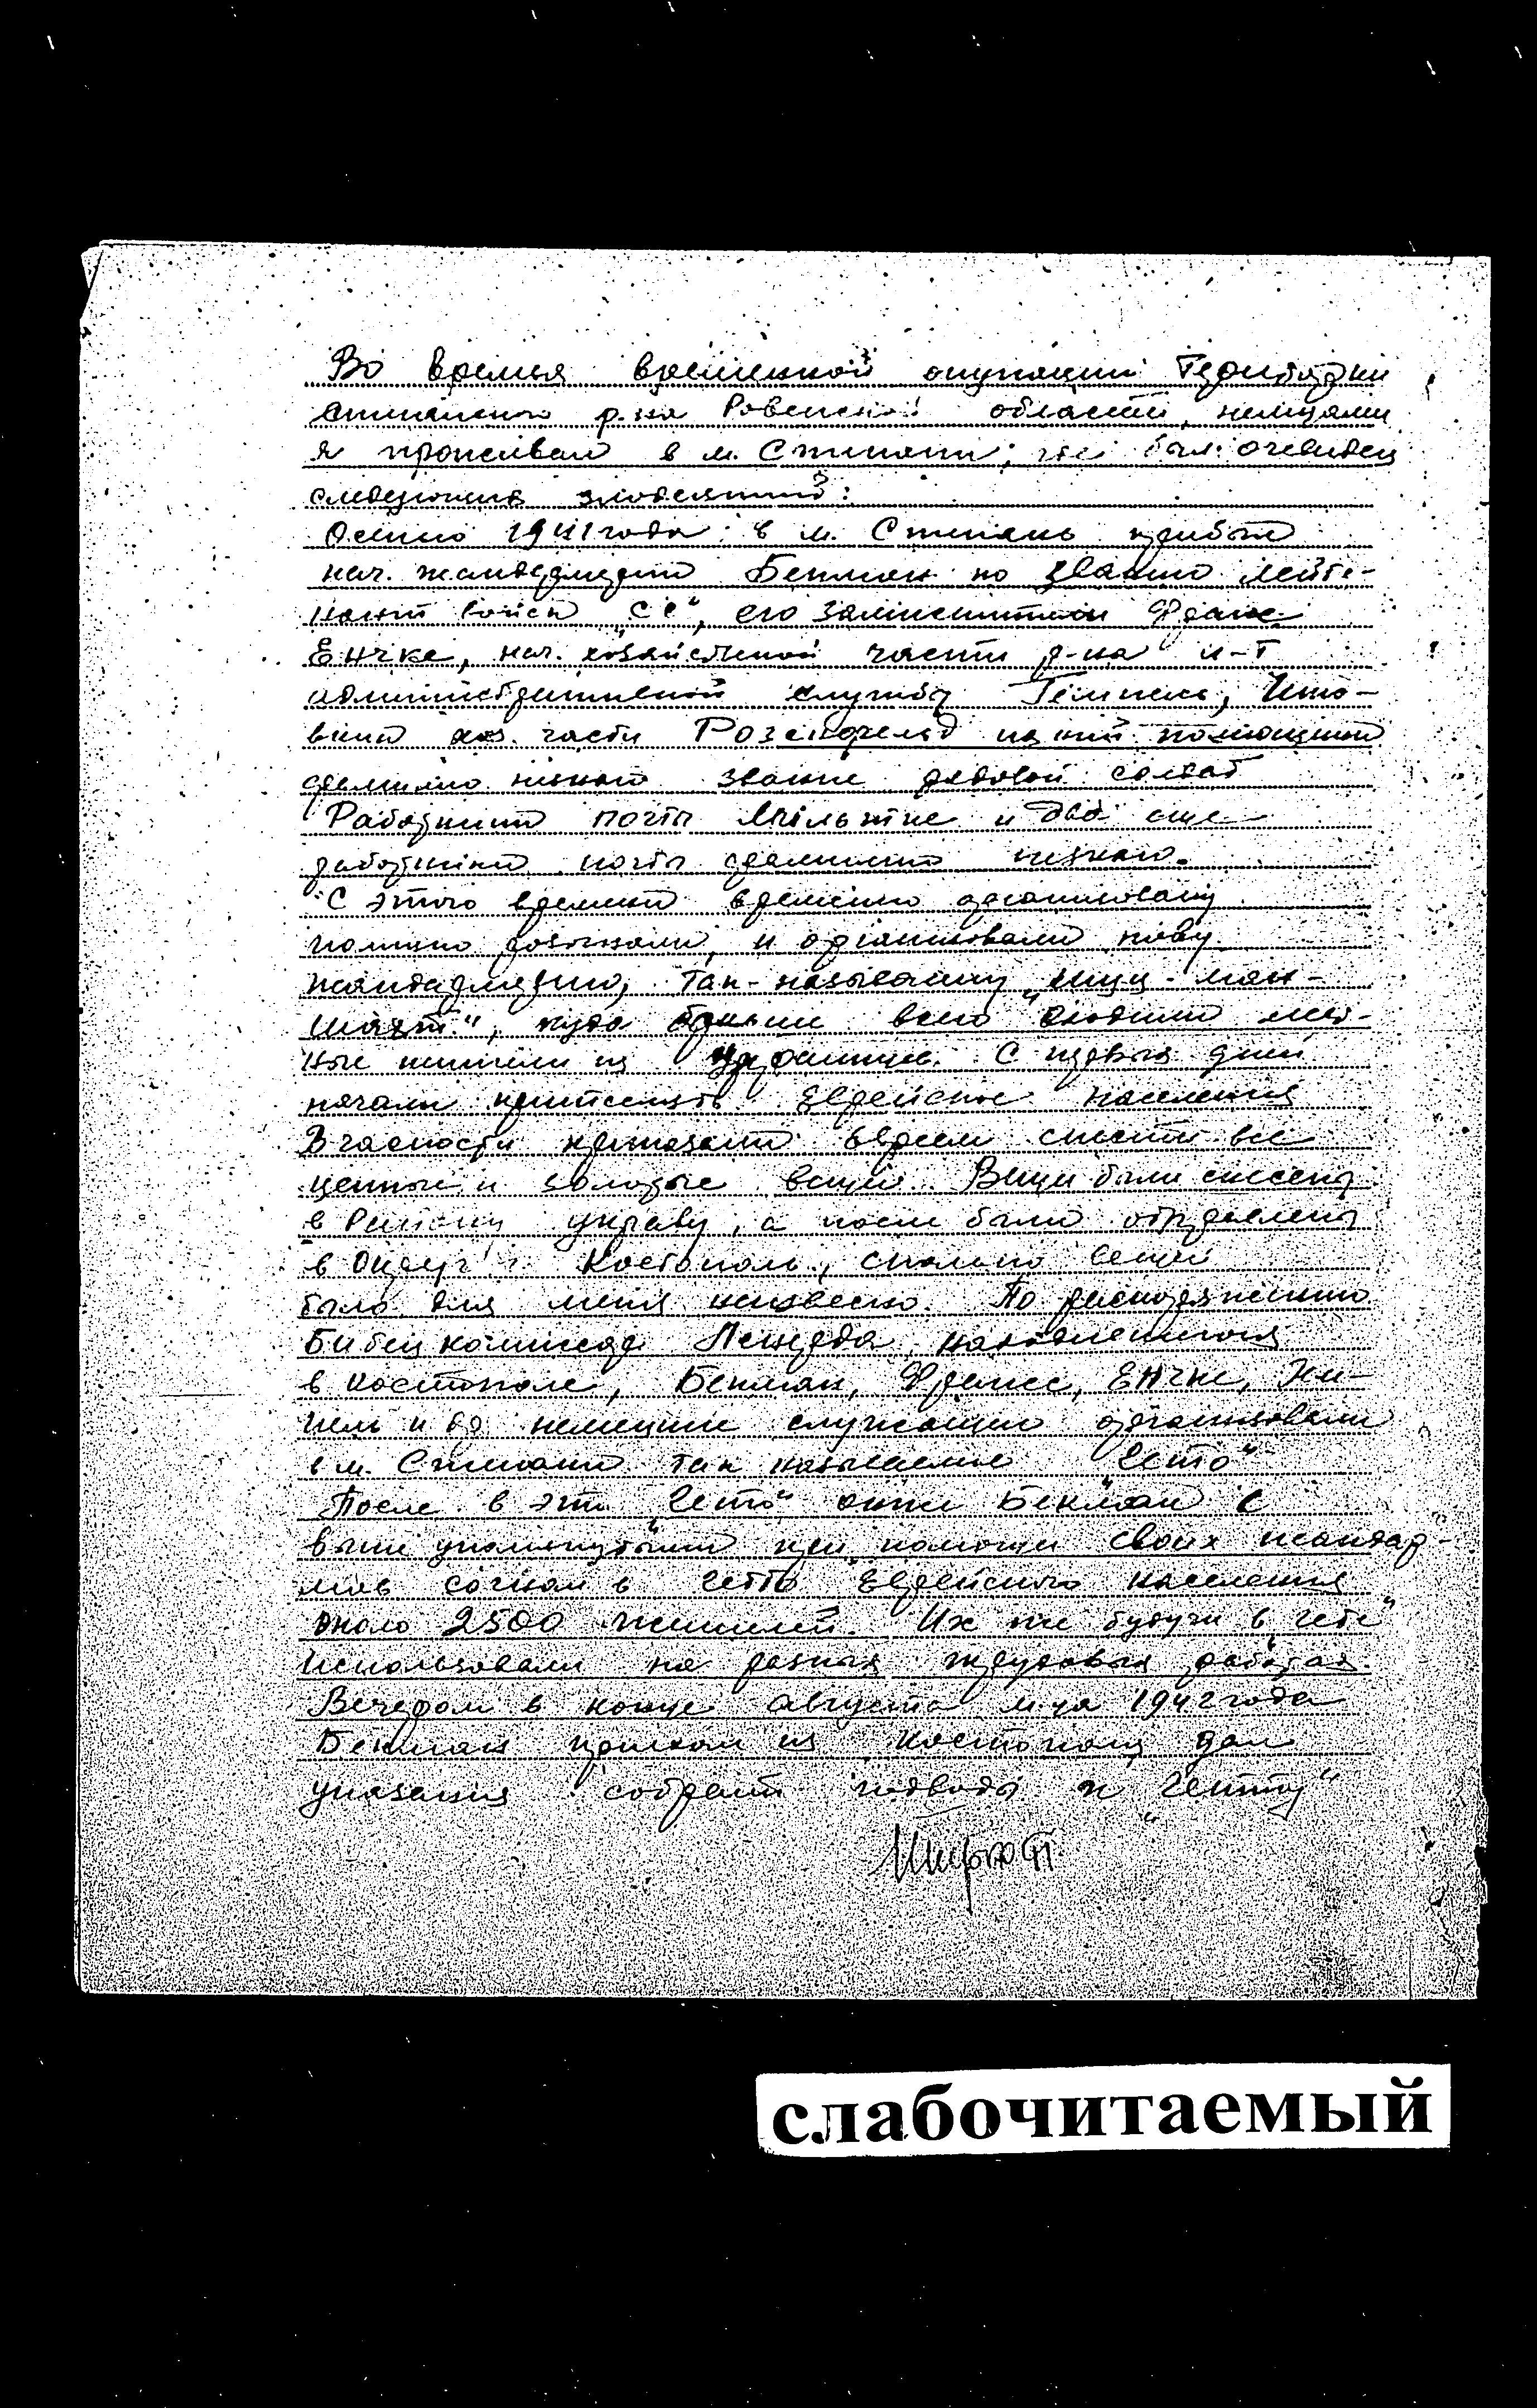 Во время временной окупации Територии
Степанского р-на Ровенской области немцами
я проживал в м. Степани, где был очевидец
следующих злодеяний:
Осенью 1941 года в м. Степань прибыл
нач. жандармерии Бекман по званию лейте-
нант войск "СС", его заместители Франс
Енчке, нач. хозяйственой части р-на л-т
административной службы Гемпель,
хоз. части Розенфельд
звание рядовой солдат
Работники почты и два еще
работника почты
С этого времени временно организовану
полицию розогнали, и организовали нову
жандармерию, так-называему "шуц-ман-
шафт", куда входили мест-
ные жители из Украинцев. С первых дней
начали притеснять Еврейское население
В часности приказали Евреям снести все
ценные и золотые вещи. Вещи были снесены
в Районну управу, а после были отправлены
в Округ г. Костополь, сколько вещей
было для меня неизвесно. По распоряжению
находившегося
в Костополе, Бекман, Франс, Енчке, Гем-
пель и др немецкие служащие организовали
в м. Степани так называемые "Гетто"
После в это "Гетто" они же Бекман с
выше упомянутыми при помощи своих жандар-
мов согнали в гетто Еврейского населения
около 2500 жителей. Их же будучи в "гете"
использовали на разных трудовых работах.
Вечером в конце августа м-ца 1942 года
Бекман приехал из Костополя дал
указания собрать подводы к "Гетту"